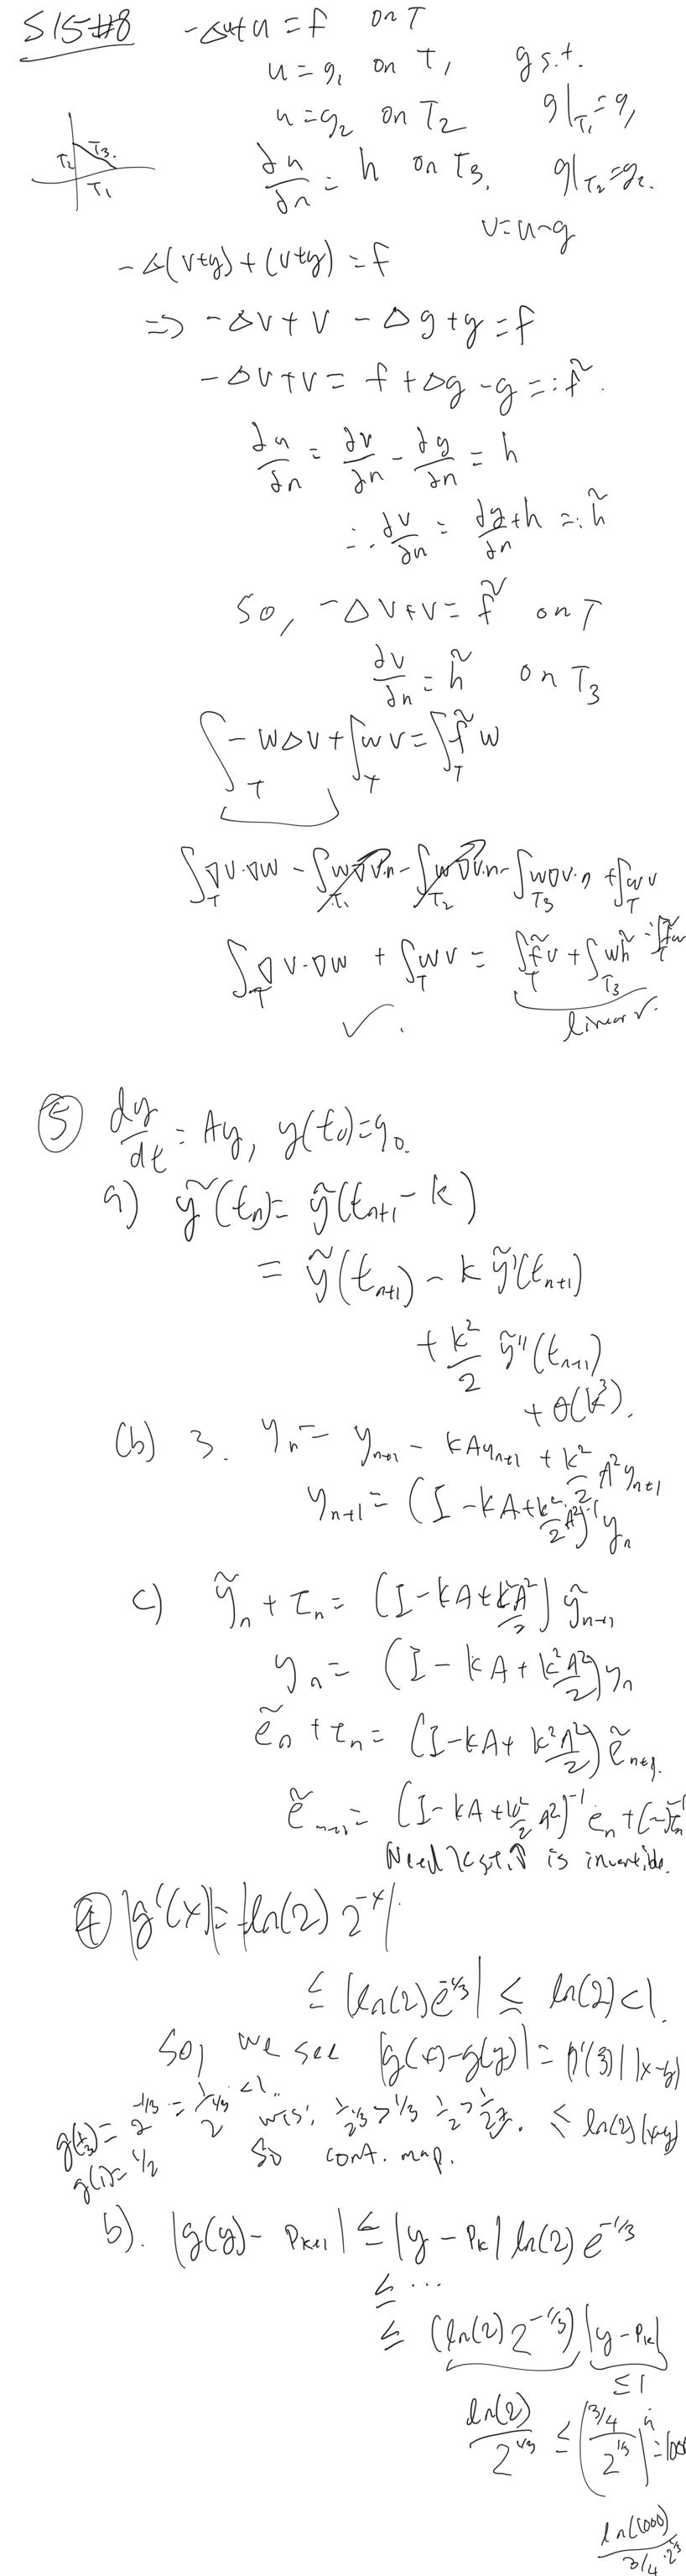 S15#8 -Δu+u = f on T
u = g₁ on T₁ g s.t.
u = g₂ on T₂ g|_T₁ = g₁
∂u/∂n = h on T₃. g|_T₂ = g₂.
T₂ T₃.
T₁
v = u-g
-Δ(v+g)+(v+g) = f
=> -Δv+v - Δg+g = f
-Δv+v = f+Δg-g =: f̃.
∂u/∂n = ∂v/∂n - ∂g/∂n = h
∴ ∂v/∂n = ∂g/∂n + h =: h̃
So, -Δv+v = f̃ on T
∂v/∂n = h̃ on T₃
∫_T -wΔv + ∫_T wv = ∫_T f̃ w
∫_T ∇v·∇w - ∫_T₁ w∇v·n - ∫_T₂ w∇v·n - ∫_T₃ w∇v·n + ∫_T wv = ∫_T f̃w
∫_T ∇v·∇w + ∫_T wv = ∫_T f̃v + ∫_T₃ wh̃
✓. linear ✓.
⑤ dy/dt = Ay, y(t₀)=y₀.
a) ỹ(tₙ) = ỹ(tₙ₊₁ - k)
= ỹ(tₙ₊₁) - k ỹ'(tₙ₊₁)
+ k²/2 ỹ''(tₙ₊₁)
+ O(k³).
(b) 3. yₙ = yₙ₊₁ - kAyₙ₊₁ + k²/2 A²yₙ₊₁
yₙ₊₁ = (I - kA + k²/2 A²)⁻¹ yₙ
c) ỹₙ + τₙ = (I - kA + k²A²/2) ỹₙ₊₁
yₙ = (I - kA + k²A²/2) yₙ
ẽₙ + τₙ = (I - kA + k²A²/2) ẽₙ₊₁.
ẽₙ₊₁ = (I - kA + k²/2 A²)⁻¹ eₙ + (~)⁻¹τₙ
Need k s.t. ↑ is invertible.
④ |g'(x)| = |-ln(2) 2⁻ˣ|
≤ |ln(2)e^{-1/3}| ≤ ln(2) < 1.
So, we see |g(x)-g(y)| = |g'(ξ)| |x-y|
≤ ln(2)|x-y|
g(1/3) = 2^{-1/3} = 1/2^{1/3} < 1. WTS: 1/2^{1/3} > 1/3
g(1) = 1/2 So cont. map.
b). |g(y) - pₖ₊₁| ≤ |y - pₖ| ln(2) e^{-1/3}
≤ ...
≤ (ln(2) 2^{-1/3}) |y - pₖ|
≤ 1
ln(2)/2^{1/3} ≤ (3/4 / 2^{1/3})ⁿ = 1000
ln(1000)/3/4·2^{1/3}